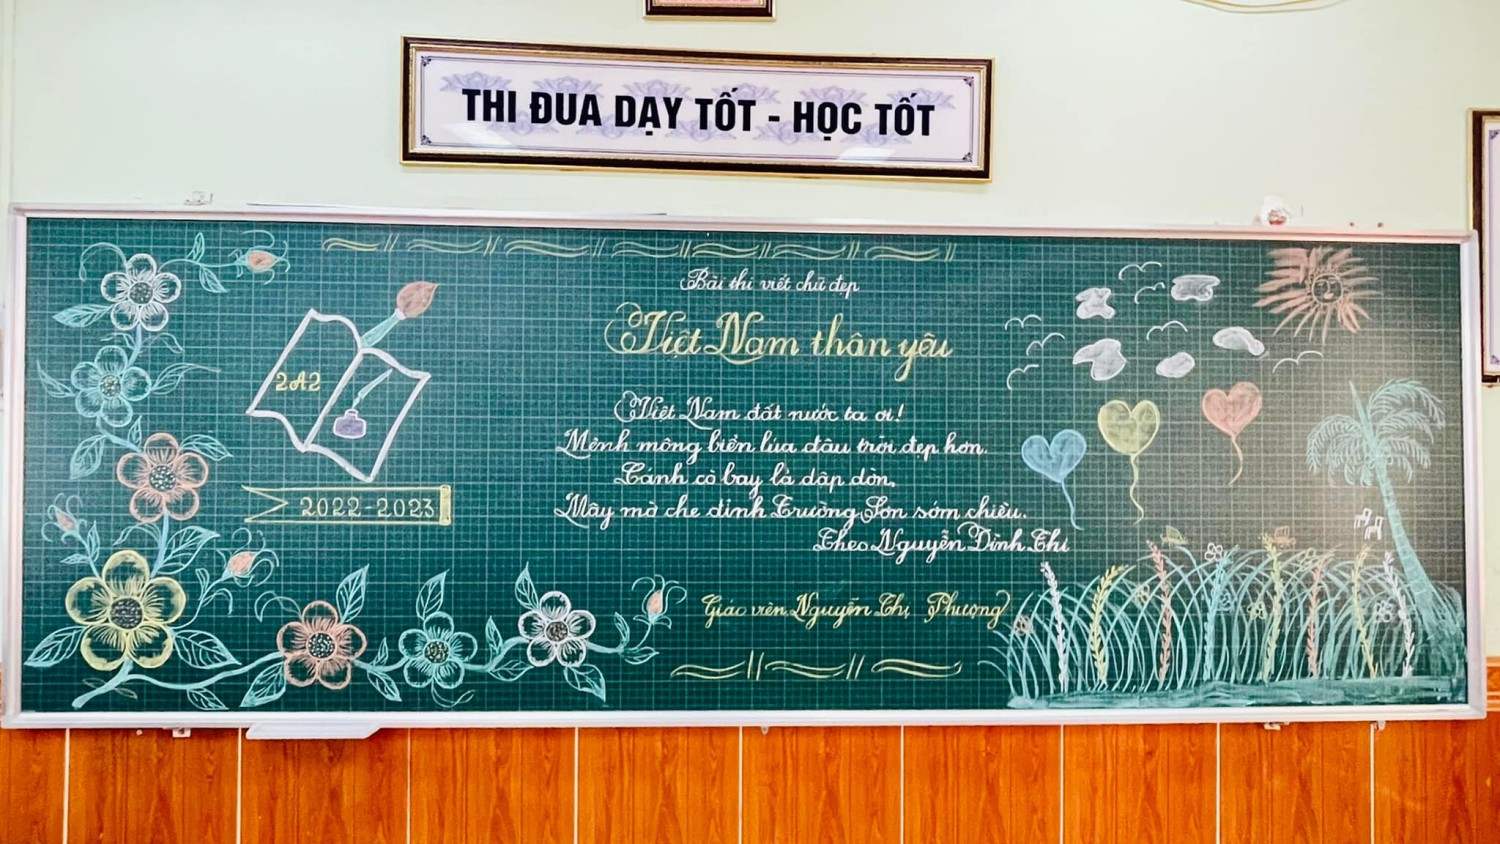 THI ĐUA DẠY TỐT - HỌC TỐT
Bài thi viết chữ đẹp
Việt Nam thân yêu
2A2
Việt Nam đất nước ta ơi!
Mênh mông biển lúa đâu trời đẹp hơn.
Cánh cò bay lả dập dờn,
Mây mờ che đỉnh Trường Sơn sớm chiều.
2022-2023
Theo Nguyễn Đình Thi
Giáo viên Nguyễn Thị Phượng